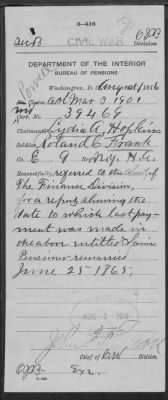 3-416
CIVIL WAR
Division
DEPARTMENT OF THE INTERIOR
BUREAU OF PENSIONS
Washington, D. August 1, 1916
Act Mar 3 1901
Cert. No. 39469
Claimant Lydia A. Hopkins
Soldier Roland C. Frank
Co. E 9 N.Y. H.A.
Respectfully referred to the Chief of
The Finance Division,
for a report showing the
date to which last pay-
ment was made in
the above entitled claim
Pensioner remarried
June 25-1865.
AUG 1916
Chief of Division
Exr.